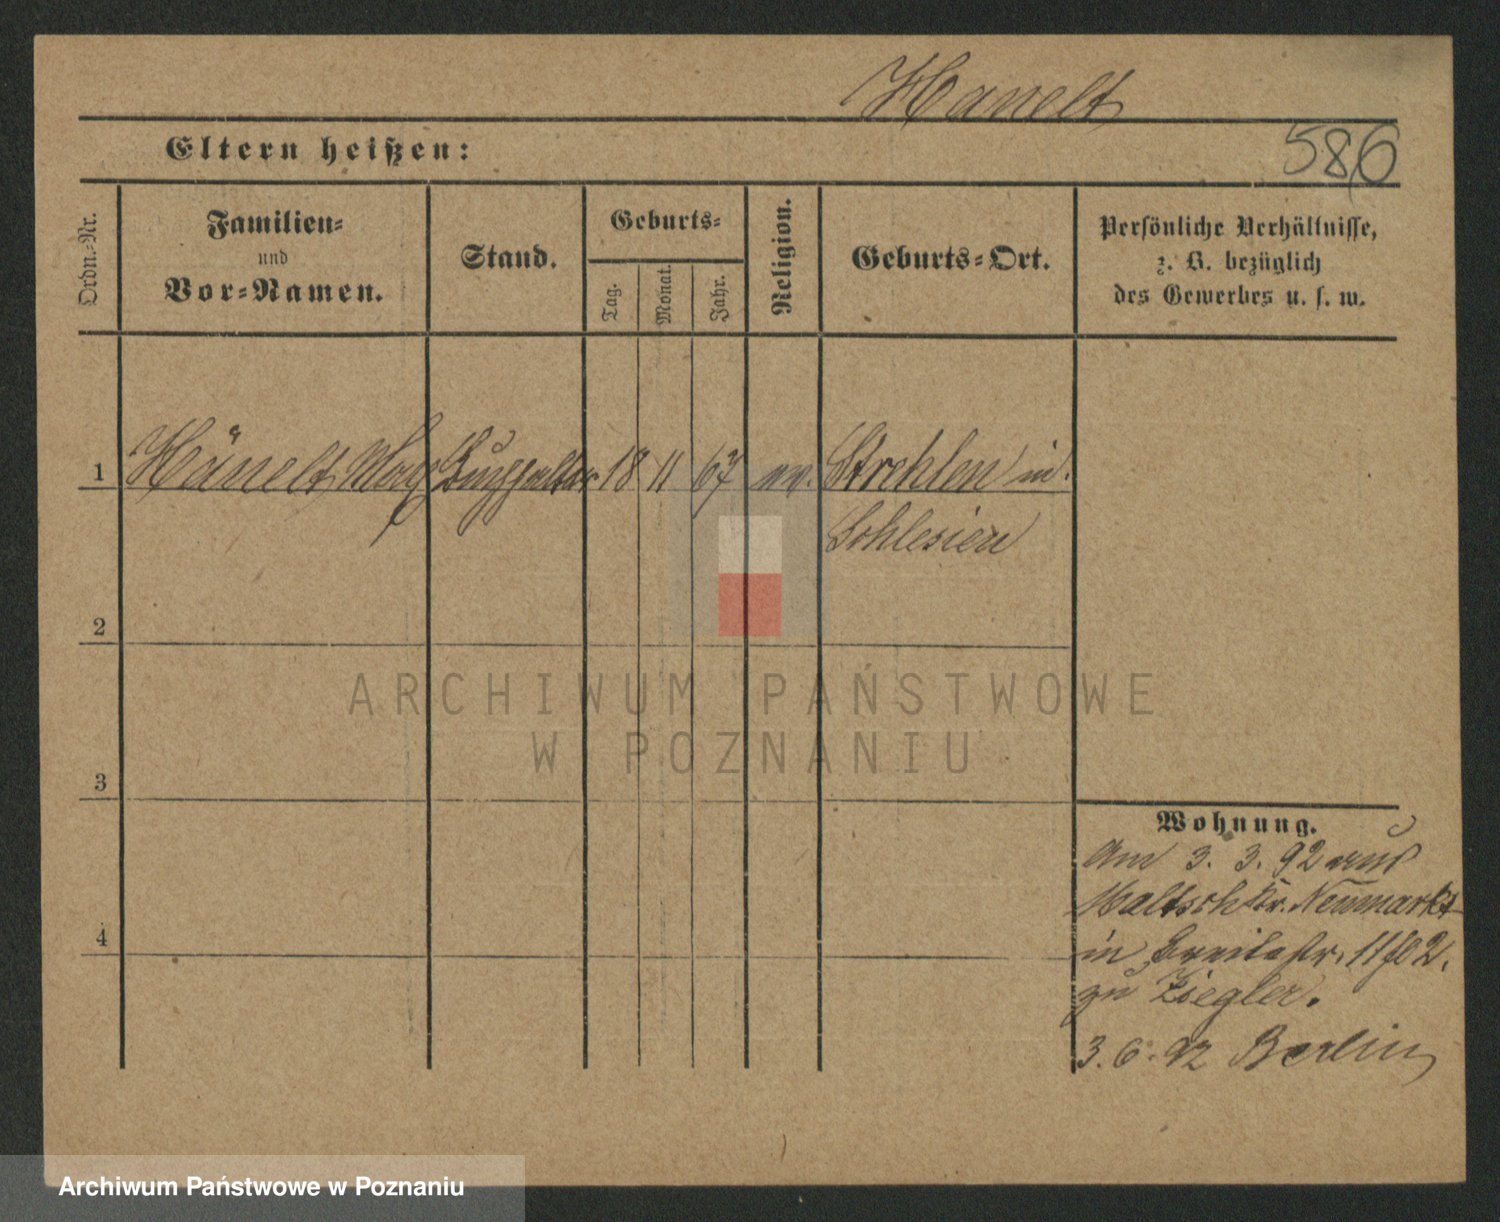 Hanelt
586
Eltern heißen:
Ordn.-Nr.
Familien-
und
Vor-Namen.
Stand.
Geburts-
Tag.
Monat.
Jahr.
Religion.
Geburts-Ort.
Persönliche Verhältnisse,
z. B. bezüglich
des Gewerbes u. s. w.
1 Hänelt, Max 18 11 67 ev. Strehlen in
Schlesien
2
3
4
Wohnung.
Am 3. 3. 92 aus
Maltsch Kr. Neumarkt
in Breitestr. 11
zu Ziegler.
3. 6. 92 Berlin
ARCHIWUM PAŃSTWOWE
W POZNANIU
Archiwum Państwowe w Poznaniu